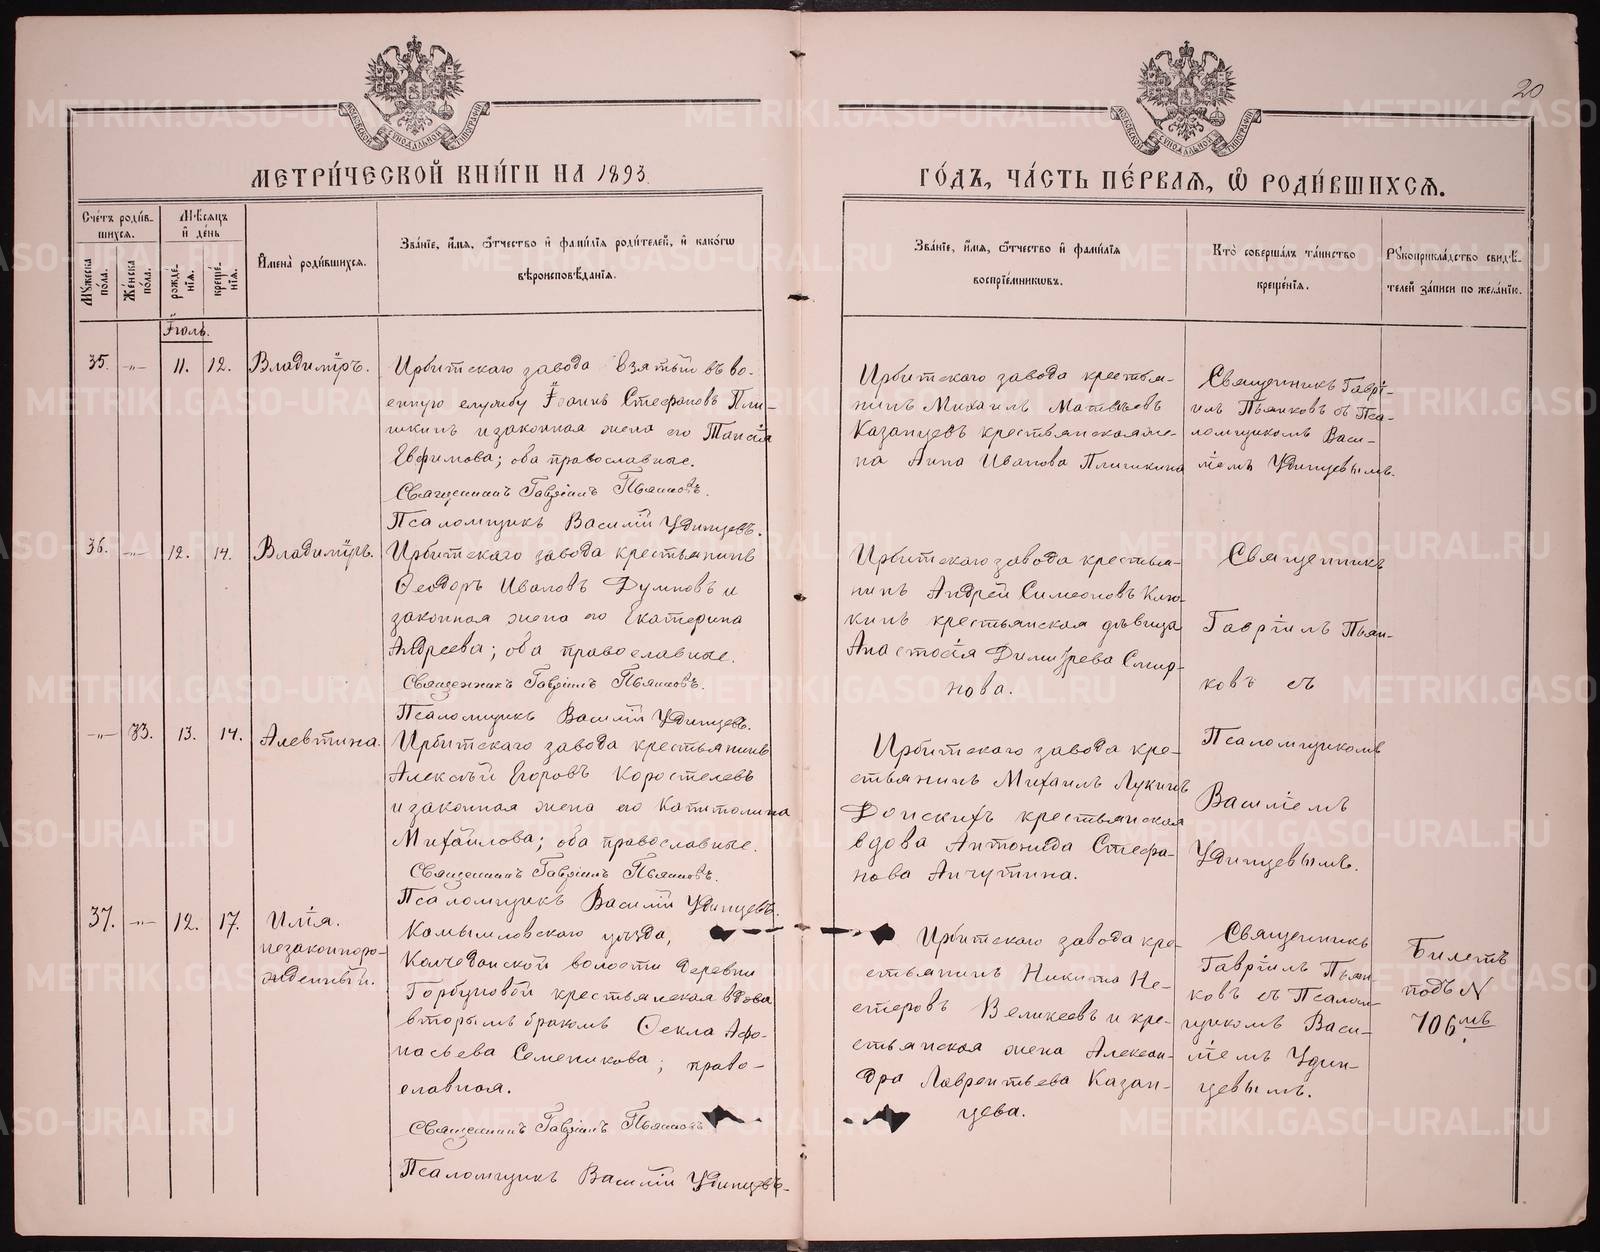 20
МЕТРИ́ЧЕСКОЙ КНИ́ГИ НА 1893
ГО́ДЪ, ЧА́СТЬ ПЕ́РВАЯ, Ѡ҆ РОДИ́ВШИХСЯ.
Сче́тъ роди́в-
шихся.
Мѣ́сяцъ
и҆ де́нь
Мꙋ́жеска по́ла.
Же́нска по́ла.
рожде́-
нїя.
креще́-
нїя.
И҆мена̀ роди́вшихся.
Зва́нїе, и҆́мя, ѻ҆́тчество и҆ фами́лїѧ роди́телей, и҆ како́гѡ
вѣроисповѣ́данїя.
Зва́нїе, и҆́мя, ѻ҆́тчество и҆ фами́лїѧ
воспрїе́мниковъ.
Кто̀ соверша́лъ та́инство
креще́нїя.
Рꙋкоприкла́дство свидѣ́-
телей за́писи по жела́нїю.
Іюль.
35. -„- 11. 12. Владиміръ.
Ирбитскаго завода взятый въ во-
енную службу Іоаннъ Стефановъ Пли-
шкинъ и законная жена его Таисія
Евфимова; оба православные.
Священникъ Гавріилъ Пьянковъ.
Псаломщикъ Василій Удинцевъ.
Ирбитскаго завода крестья-
нинъ Михаилъ Матвѣевъ
Казанцевъ крестьянская же-
на Анна Иванова Плишкина
Священникъ Гаврі-
илъ Пьянковъ съ Пса-
ломщикомъ Васи-
ліемъ Удинцевымъ.
36. -„- 12. 14. Владиміръ.
Ирбитскаго завода крестьянинъ
Ѳеодоръ Ивановъ Думновъ и
законная жена его Екатерина
Андреева; оба православные.
Священникъ Гавріилъ Пьянковъ.
Псаломщикъ Василій Удинцевъ.
Ирбитскаго завода крестья-
нинъ Андрей Симеоновъ Клю-
кинъ крестьянская дѣвица
Анастасія Димитрева Смир-
нова.
Священникъ
Гавріилъ Пьян-
ковъ съ
Псаломщикомъ
Василіемъ
Удинцевымъ.
-„- 33. 13. 14. Алевтина.
Ирбитскаго завода крестьянинъ
Алексѣй Егоровъ Коростелевъ
и законная жена его Капитолина
Михайлова; оба православные.
Священникъ Гавріилъ Пьянковъ.
Псаломщикъ Василій Удинцевъ.
Ирбитскаго завода кре-
стьянинъ Михаилъ Лукинъ
Донскихъ крестьянская
вдова Антонида Стефа-
нова Анчутина.
37. -„- 12. 17. Илія.
незаконноро-
жденный.
Камышловскаго уѣзда,
Колчеданской волости деревни
Горбуновой крестьянская вдова
вторымъ бракомъ Ѳекла Афо-
насьева Семенникова; право-
славная.
Священникъ Гавріилъ Пьянковъ
Псаломщикъ Василій Удинцевъ.
Ирбитскаго завода кре-
стьянинъ Никита Не-
стеровъ Великевъ и кре-
стьянская жена Алексан-
дра Лаврентьева Казан-
цева.
Священникъ
Гавріилъ Пьян-
ковъ съ Псалом-
щикомъ Васи-
ліемъ Удин-
цевымъ.
Билетъ
подъ N
706мъ.
METRIKI.GASO-URAL.RU